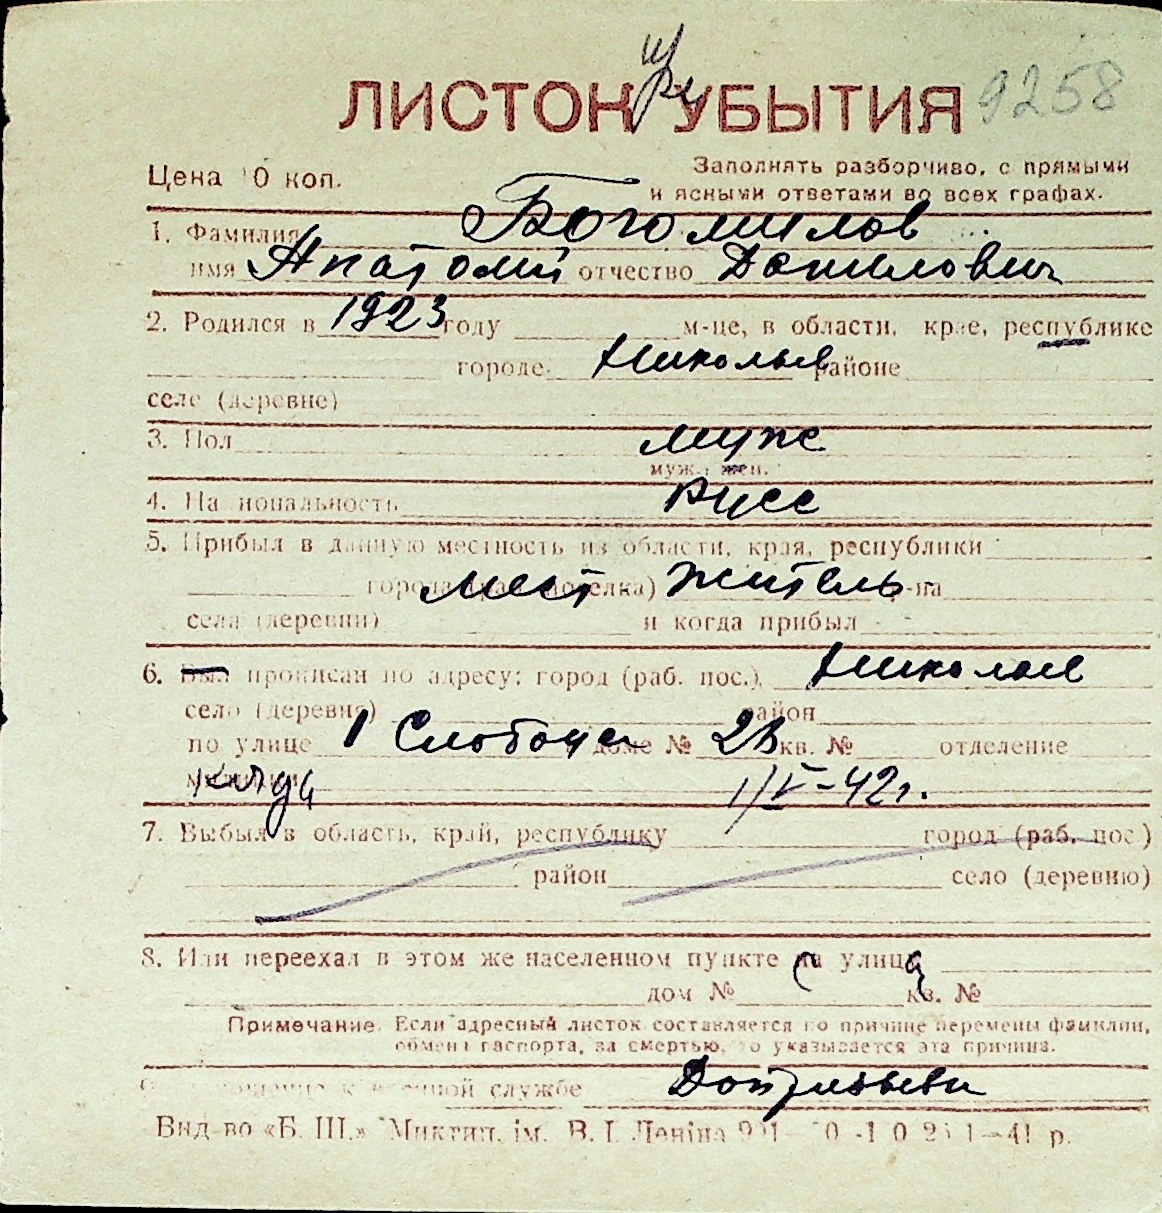 при
ЛИСТОК УБЫТИЯ 9258
Цена 10 коп. Заполнять разборчиво, с прямыми
и ясными ответами во всех графах.
1. Фамилия Богомилов
имя Анатолий отчество Данилович
2. Родился в 1923 году м-це, в области, крае, республике
городе Николаев районе
селе (деревне)
3. Пол муж
муж., жен.
4. Национальность Русс
5. Прибыл в данную местность из области, края, республики
города (раб. поселка) мест житель р-на
села (деревни) и когда прибыл
6. Был прописан по адресу: город (раб. пос.) Николаев
село (деревня) район
по улице 1 Слободск доме № 2в кв. № отделение
милиции когда 1/V-42г.
7. Выбыл в область, край, республику город (раб. пос.)
район село (деревню)
8. Или переехал в этом же населенном пункте на улицу
дом № кв. №
Примечание. Если адресный листок составляется по причине перемены фамилии,
обмена паспорта, за смертью, то указывается эта причина.
военной службе
Вид-во «Б. Ш.» Миктип. ім. В. І. Леніна 41 р.